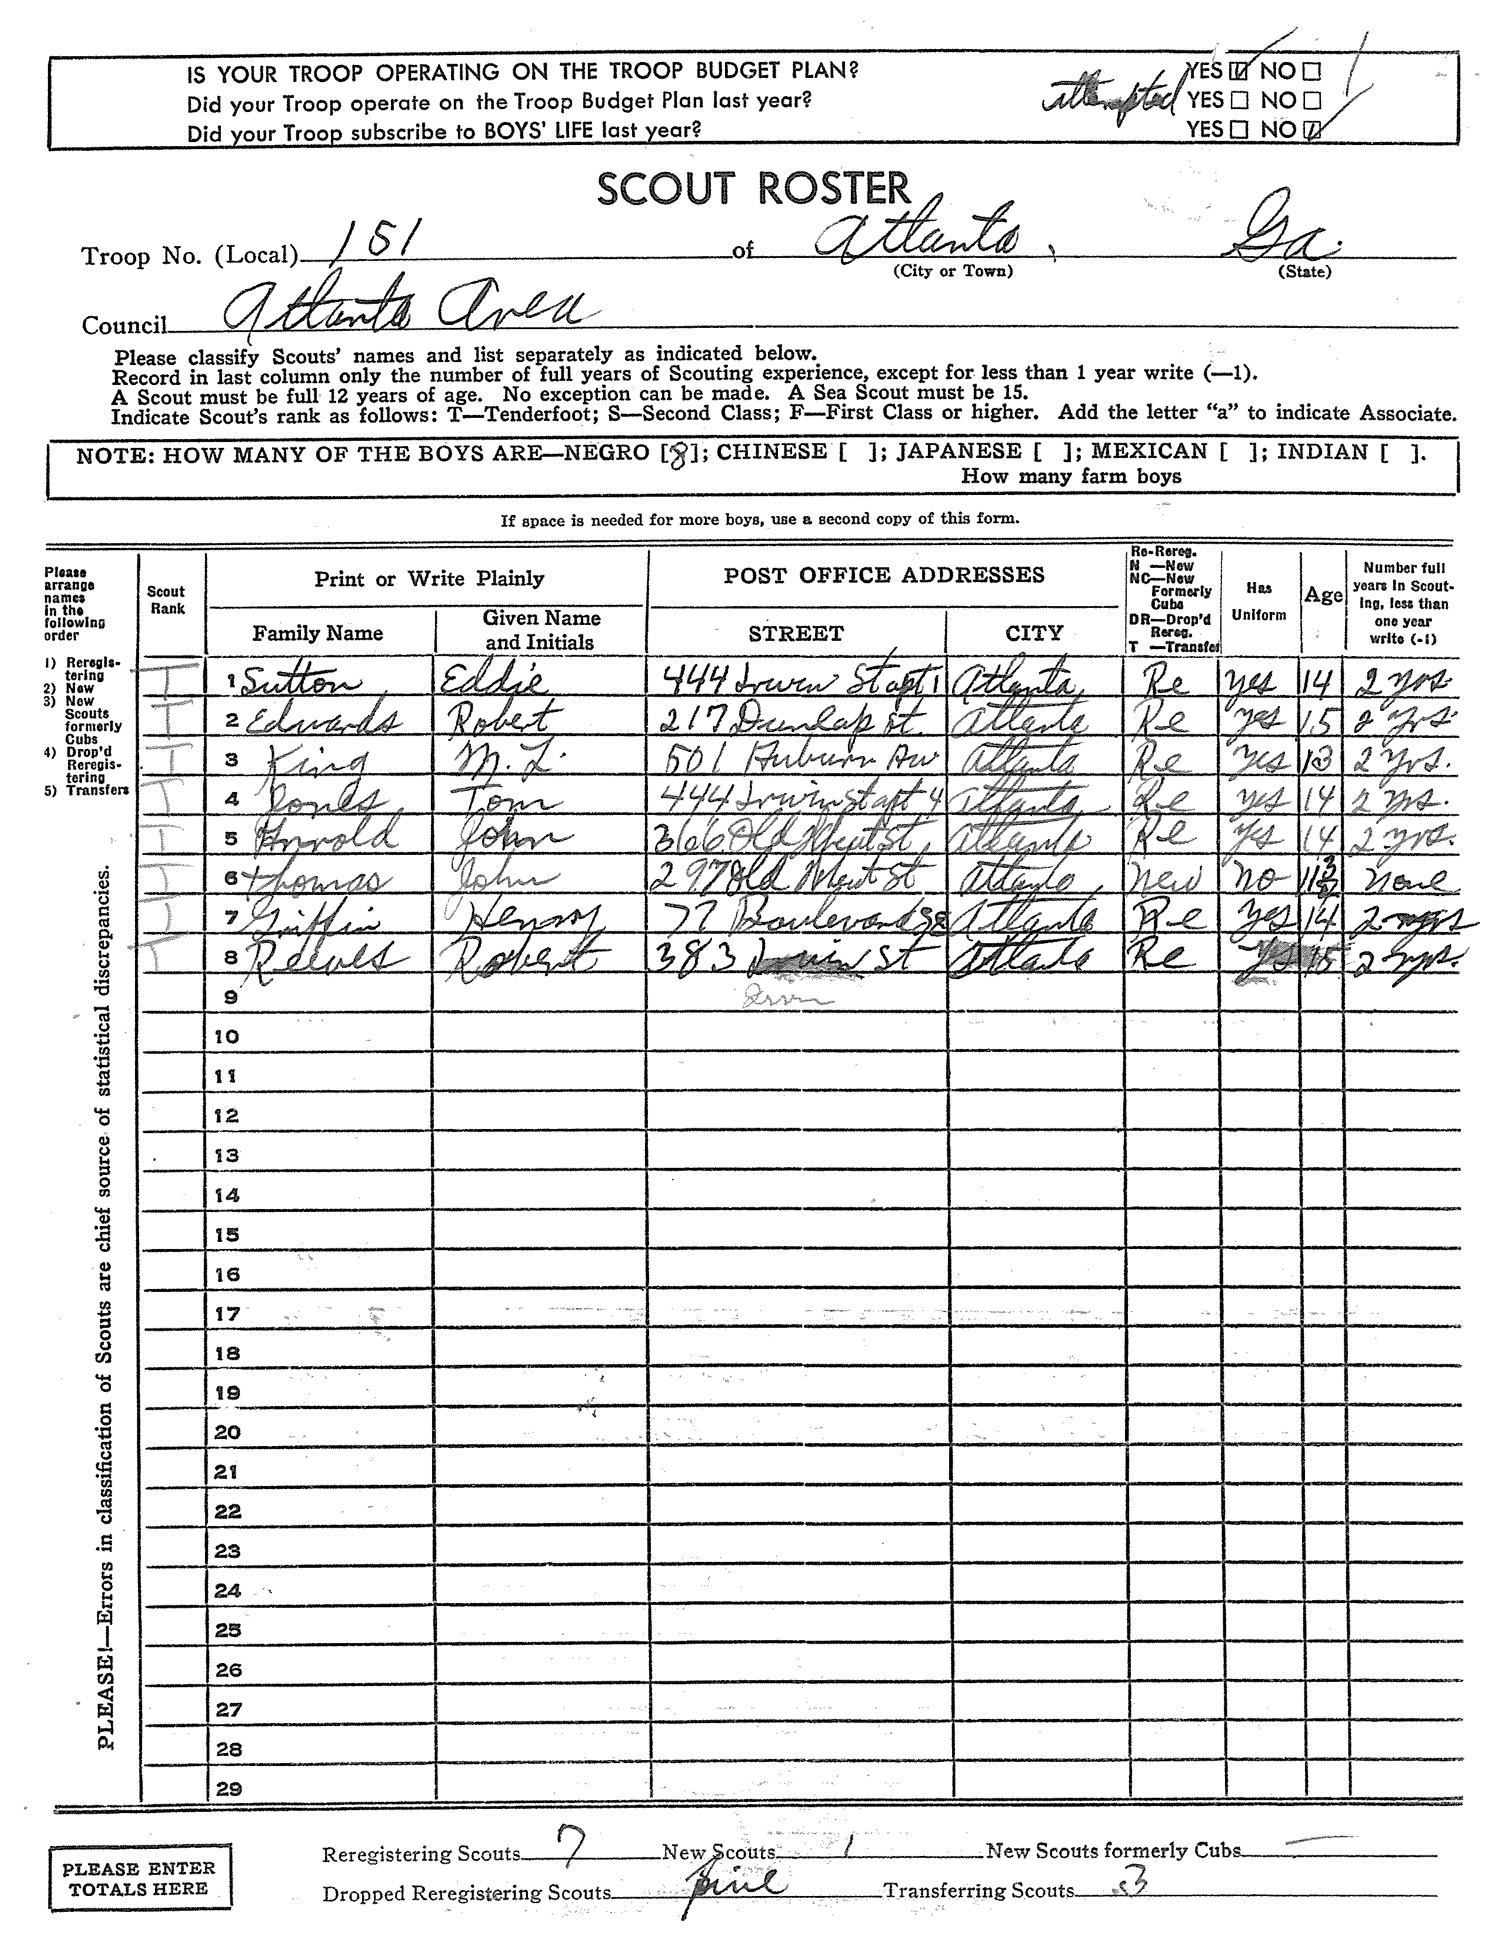 IS YOUR TROOP OPERATING ON THE TROOP BUDGET PLAN? YES ☑ NO ☐
Did your Troop operate on the Troop Budget Plan last year? attempted YES ☐ NO ☐
Did your Troop subscribe to BOYS' LIFE last year? YES ☐ NO ☑
SCOUT ROSTER
Troop No. (Local) 151 of Atlanta, Ga.
(City or Town) (State)
Council Atlanta Area
Please classify Scouts' names and list separately as indicated below.
Record in last column only the number of full years of Scouting experience, except for less than 1 year write (—1).
A Scout must be full 12 years of age. No exception can be made. A Sea Scout must be 15.
Indicate Scout's rank as follows: T—Tenderfoot; S—Second Class; F—First Class or higher. Add the letter "a" to indicate Associate.
NOTE: HOW MANY OF THE BOYS ARE—NEGRO [8]; CHINESE [ ]; JAPANESE [ ]; MEXICAN [ ]; INDIAN [ ].
How many farm boys
If space is needed for more boys, use a second copy of this form.
Please arrange names in the following order
1) Reregistering
2) New
3) New Scouts formerly Cubs
4) Drop'd Reregistering
5) Transfers
Scout Rank
Print or Write Plainly
Family Name
Given Name and Initials
POST OFFICE ADDRESSES
STREET CITY
Re-Rereg.
N —New
NC—New Formerly Cubs
DR—Drop'd Rereg.
T —Transfer
Has Uniform
Age
Number full years in Scouting, less than one year write (-1)
T 1 Sutton Eddie 444 Irwin St apt 1 Atlanta Re Yes 14 2 yrs.
T 2 Edwards Robert 217 Dunlap St. Atlanta Re Yes 15 2 yrs.
T 3 King M. L. 501 Auburn Av Atlanta Re Yes 13 2 Yrs.
T 4 Jones Tom 444 Irwin St apt 4 Atlanta Re Yes 14 2 yrs.
T 5 Arnold John 366 Old Wheat St, Atlanta Re Yes 14 2 yrs.
T 6 Thomas John 297 Old Wheat St Atlanta New No None
T 7 Griffin Henry 77 Boulevard SE Atlanta Re Yes 14 2 yrs
T 8 Reeves Robert 383 Irwin St Atlanta Re Yes 15 2 yrs.
9
10
11
12
13
14
15
16
17
18
19
20
21
22
23
24
25
26
27
28
29
PLEASE!—Errors in classification of Scouts are chief source of statistical discrepancies.
PLEASE ENTER TOTALS HERE
Reregistering Scouts 7 New Scouts 1 New Scouts formerly Cubs —
Dropped Reregistering Scouts Transferring Scouts 3